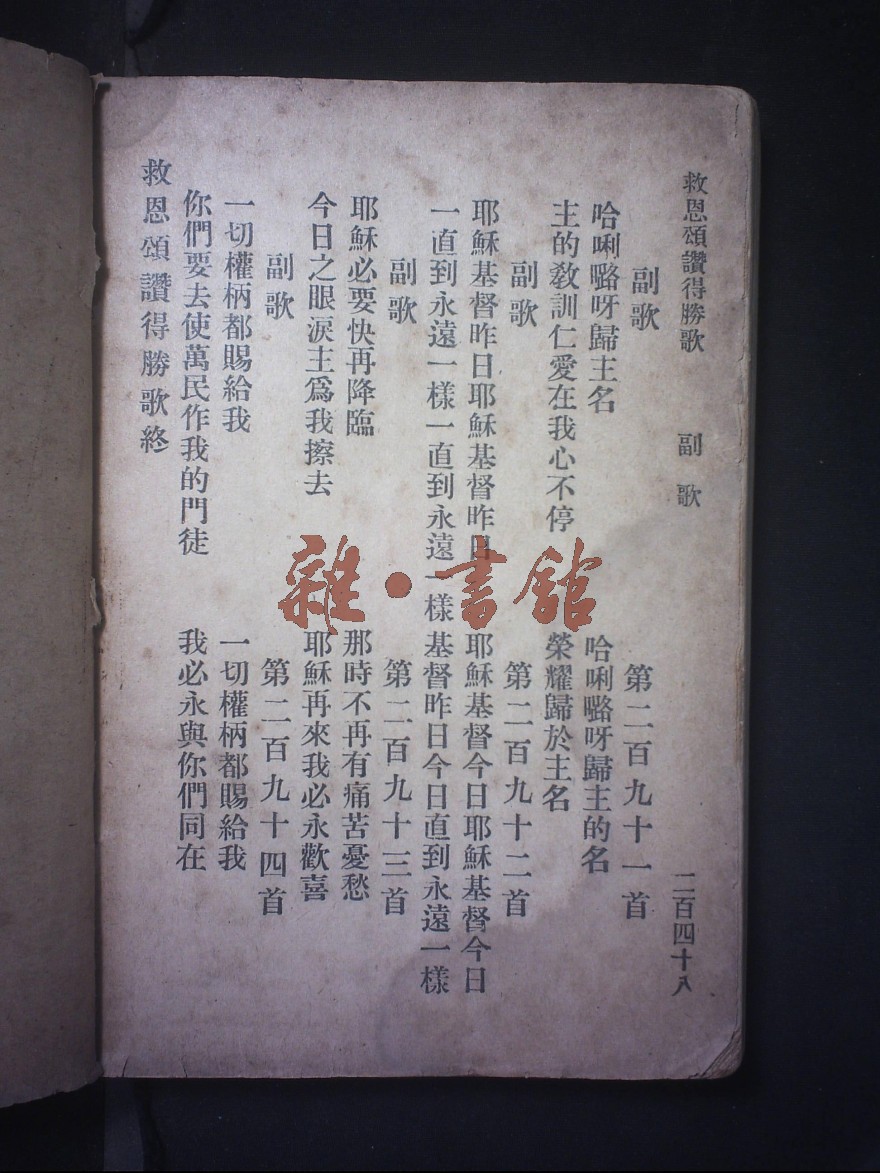 救恩頌讚得勝歌　副歌　二百四十八
副歌　第二百九十一首
哈唎嚕呀歸主名　哈唎嚕呀歸主的名
主的教訓仁愛在我心不停　榮耀歸於主名
副歌　第二百九十二首
耶穌基督昨日耶穌基督昨日　耶穌基督今日耶穌基督今日
一直到永遠一樣一直到永遠一樣　基督昨日今日直到永遠一樣
副歌　第二百九十三首
耶穌必要快再降臨　那時不再有痛苦憂愁
今日之眼淚主爲我擦去　耶穌再來我必永歡喜
副歌　第二百九十四首
一切權柄都賜給我　一切權柄都賜給我
你們要去使萬民作我的門徒　我必永與你們同在
救恩頌讚得勝歌終
雜·書館